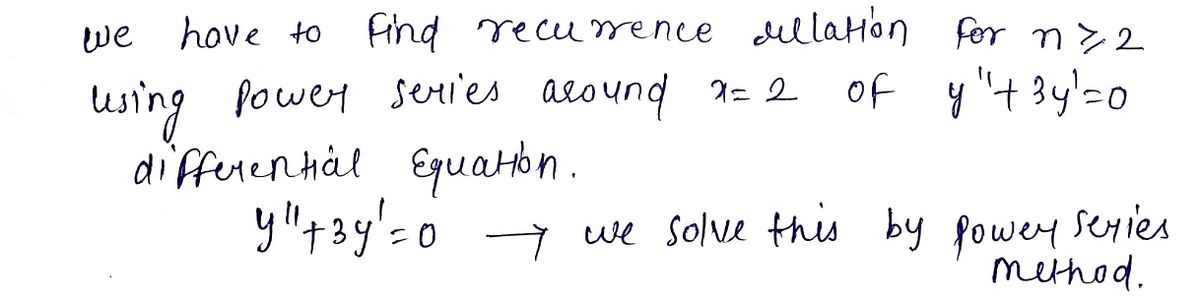 we have to find recurrence rellation for n ≥ 2
using power series around x = 2 of y'' + 3y' = 0
differential Equation.
y'' + 3y' = 0 → we solve this by power series
method.